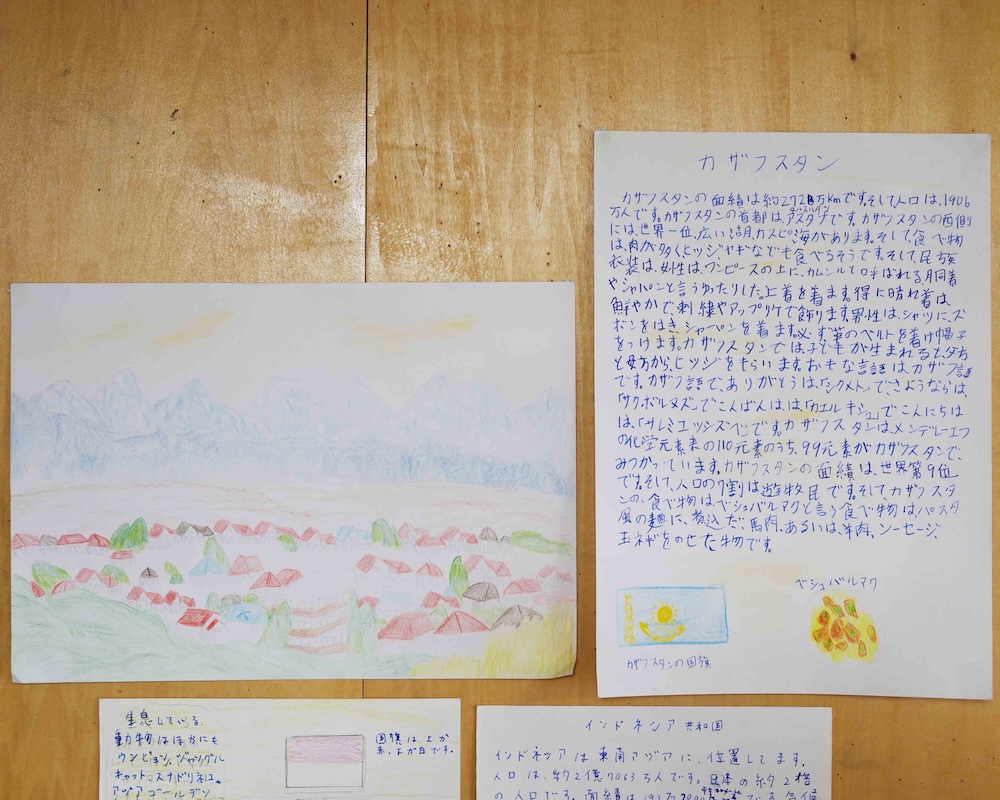 カザフスタン
カザフスタンの面積は約272万kmです。そして人口は、1906
万人です。カザフスタンの首都は、アスタナです。カザフスタンの西側
には、世界一位、広い湖、カスピ海があります。そして、食べ物
は、肉が多く、ヒツジ、ヤギなども食べるそうです。そして、民族
衣装は、女性は、ワンピースの上に、カムゾルと呼ばれる胴着
やシャパンと言うゆったりした上着を着ます。得に晴れ着は、
鮮やかで、刺繍やアップリケで飾ります。男性は、シャツに、ズ
ボンをはき、シャーペンを着ます。必ず革のベルトを着け帽子
をつけます。カザフスタンでは子どもが生まれると、父方
と母方から、ヒツジをもらいます。おもな言語は、カザフ語
です。カザフ語で、ありがとうは、「ラクメト」で、さようならは、
「サウ、ボルヌズ」でこんばんは、は、「カエルキシュ」でこんにちは
は、「サレミエッシズベ」です。カザフスタンは、メンデレーエフ
の化学元素表の110元素のうち、99元素がカザフスタンで、
みつかっています。カザフスタンの面積は、世界第9位
です。そして、人口の7割は遊牧民です。そして、カザフスタ
ンの、食べ物は、ベシュバルマクと言う食べ物は、パスタ
風の麺に、煮込んだ、馬肉、あるいは、羊肉、ソーセージ、
玉ネギをのせた物です。
ベシュバルマク
カザフスタンの国旗
生息している。
動物はほかにも
ウンピョウ、ジャングル
キャット、スナドリネコ、
アジアゴールデン
国旗は上が
赤、下が白です。
インドネシア共和国
インドネシアは東南アジアに、位置してます。
人口は、約2億7063万人です。日本の約2倍
の人口です。面積は191万